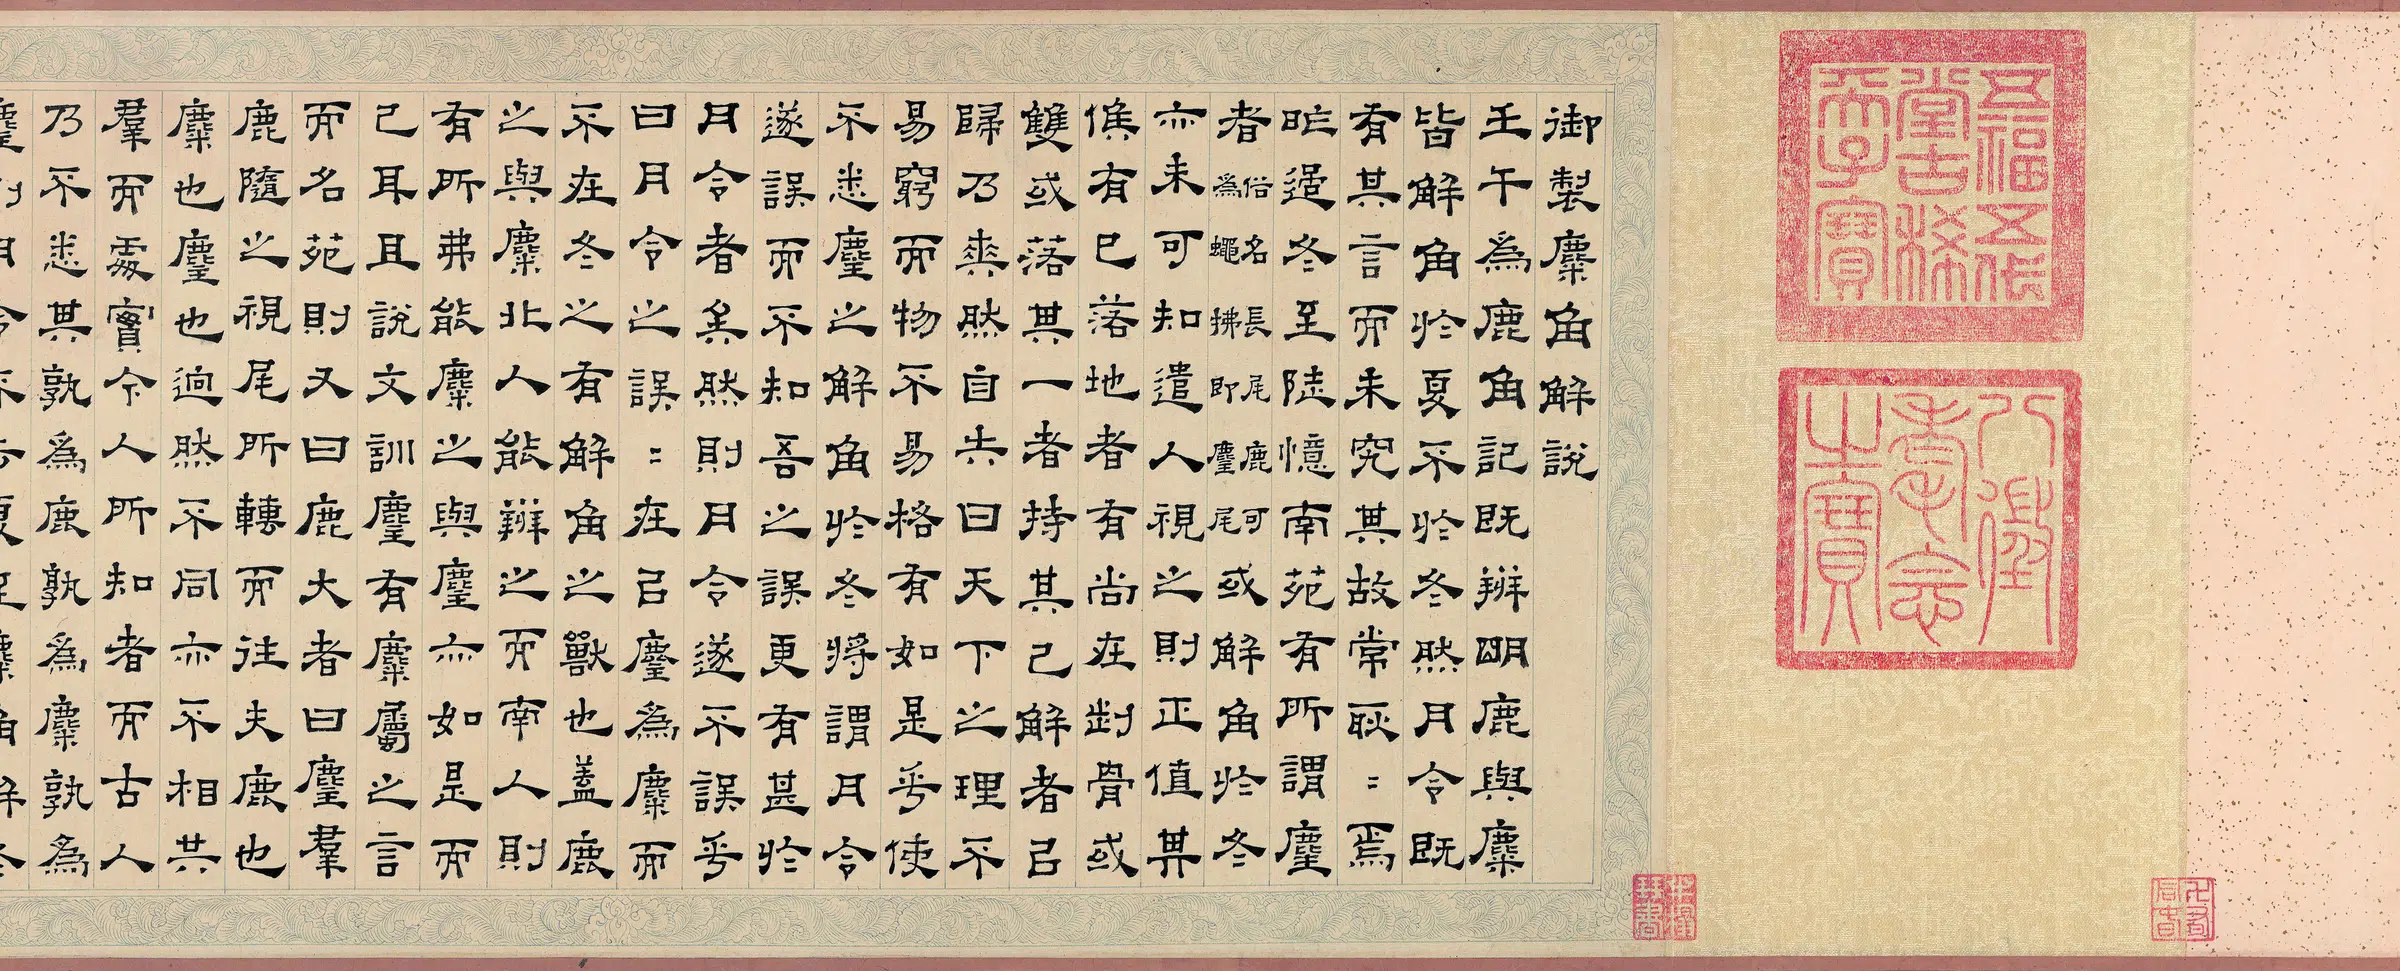 五福五代堂古稀天子寶
八徵耄念之寶
御製麋角解說
壬午為鹿角記既辨明鹿與麋
皆解角於夏不於冬然月令既
有其言而未究其故常耿〻焉
昨過冬至陡憶南苑有所謂麈
者俗名長尾鹿可為蠅拂即麈尾或解角於冬
亦未可知遣人視之則正值其
候有已落地者有尚在骨或
雙或落其一者持其已解者以
歸乃爽然自失曰天下之理不
易窮而物不易格有如是乎使
不悉麈之解角於冬將謂月令
遂誤而不知吾之誤更有甚於
月令者矣然則月令遂不誤乎
曰月令之誤〻在以麈為麋而
不在冬之有解角之獸也蓋鹿
之與麋北人能辨之而南人則
有所弗能麋之與麈亦如是而
已耳且說文訓麈有麋屬之言
而名苑則又曰鹿大者曰麈羣
鹿隨之視尾所轉而往夫鹿也
麋也麈也迥然不同亦不相共
羣而處實今人所知者而古人
乃不悉其孰為鹿孰為麋孰為